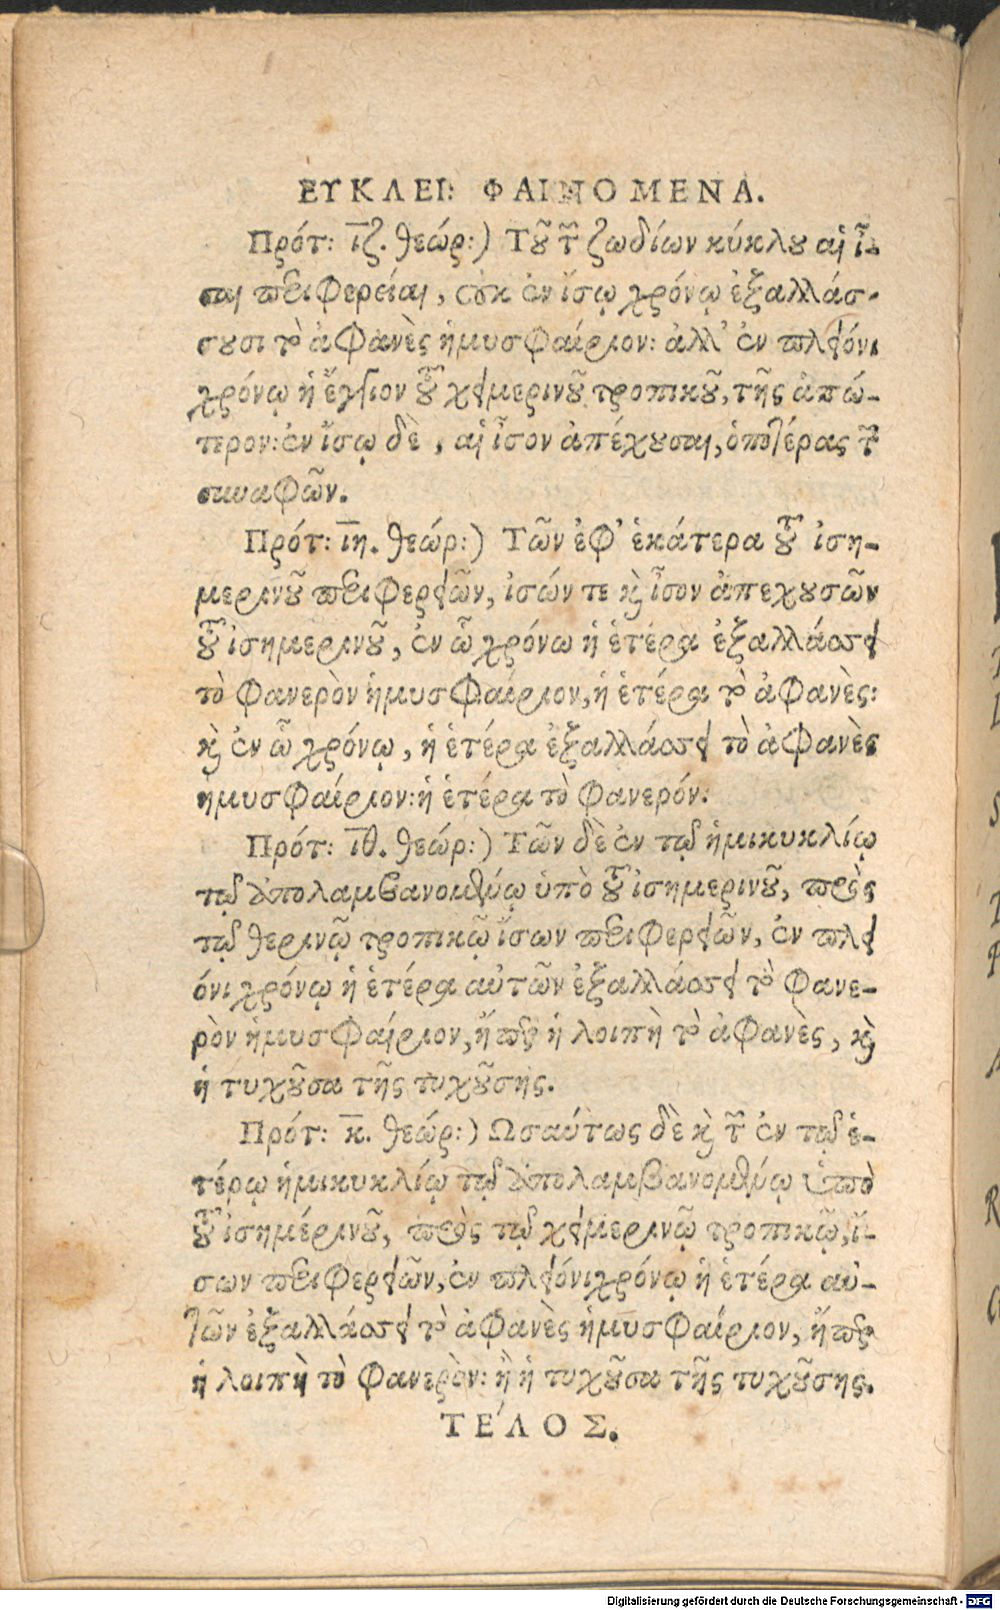 ΕΥΚΛΕΙ: ΦΑΙΝΟΜΕΝΑ.
Πρότ: ιζ. θεώρ:) Τοῦ τῶν ζωδίων κύκλου αἱ ἴ-
σαι περιφερείαι, οὐκ ἐν ἴσῳ χρόνῳ ἐξαλλάσ-
σουσι τὸ ἀφανὲς ἡμυσφαίριον: ἀλλ' ἐν πλείονι
χρόνῳ ἡ ἔγγιον τοῦ χειμερινοῦ τροπικοῦ, τῆς ἀπώ-
τερον: ἐν ἴσῳ δὲ, αἱ ἶσον ἀπέχουσαι, ὁποτέρας τῶν
συναφῶν.
Πρότ: ιη. θεώρ:) Τῶν ἐφ' ἑκάτερα τοῦ ἰση-
μερινοῦ περιφερειῶν, ἰσών τε καὶ ἶσον ἀπεχουσῶν
τοῦ ἰσημερινοῦ, ἐν ὧ χρόνω ἡ ἑτέρα ἐξαλλάσσει
τὸ φανερὸν ἡμυσφαίριον, ἡ ἑτέρα τὸ ἀφανὲς:
καὶ ἐν ὧ χρόνῳ, ἡ ἑτέρα ἐξαλλάσσει τὸ ἀφανὲς
ἡμυσφαίριον: ἡ ἑτέρα τὸ φανερόν.
Πρότ: ιθ. θεώρ:) Τῶν δὲ ἐν τῷ ἡμικυκλίῳ
τῷ ἀπολαμβανομένῳ ὑπὸ τοῦ ἰσημερινοῦ, πρὸς
τῷ θερινῷ τροπικῷ ἴσων περιφερειῶν, ἐν πλεί
όνι χρόνῳ ἡ ἑτέρα αὐτῶν ἐξαλλάσσει τὸ φανε-
ρὸν ἡμυσφαίριον, ἤπερ ἡ λοιπὴ τὸ ἀφανὲς, καὶ
ἡ τυχοῦσα τῆς τυχοῦσης.
Πρότ: κ. θεώρ:) Ωσαύτως δὲ καὶ τῶν ἐν τῷ ἑ-
τέρῳ ἡμικυκλίῳ τῷ ἀπολαμβανομένῳ ὑπὸ
τοῦ ἰσημέρινοῦ, πρὸς τῷ χειμερινῷ τροπικῷ, ἴ-
σων περιφερειῶν, ἐν πλείόνι χρόνῳ ἡ ἑτέρα αὐ-
τῶν ἐξαλλάσσει τὸ ἀφανὲς ἡμυσφαίριον, ἤπερ
ἡ λοιπὴ τὸ φανερὸν: ἢ ἡ τυχοῦσα τῆς τυχοῦσης.
ΤΕΛΟΣ.
Digitalisierung gefördert durch die Deutsche Forschungsgemeinschaft - DFG